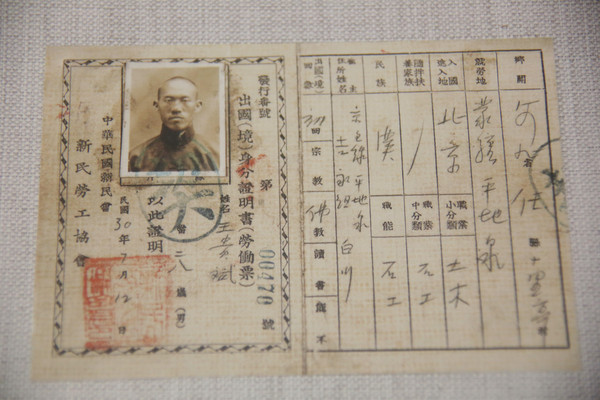 鄉關 任 縣
就勞地 蒙疆平地泉
入國進入地 北京 職業小分類 土木
隨伴扶養家族 職業中分類 石工
民族 漢 職能 石工
雇主住所姓名 平地泉 白川
回數 初回 宗教 佛教 讀書 能不
發行番號 第 00470 號
出國(境)身分證明書(勞働票)
姓名 王
二八歲(男)
以此證明
民國30年7月12日
中華民國新民會
新民勞工協會